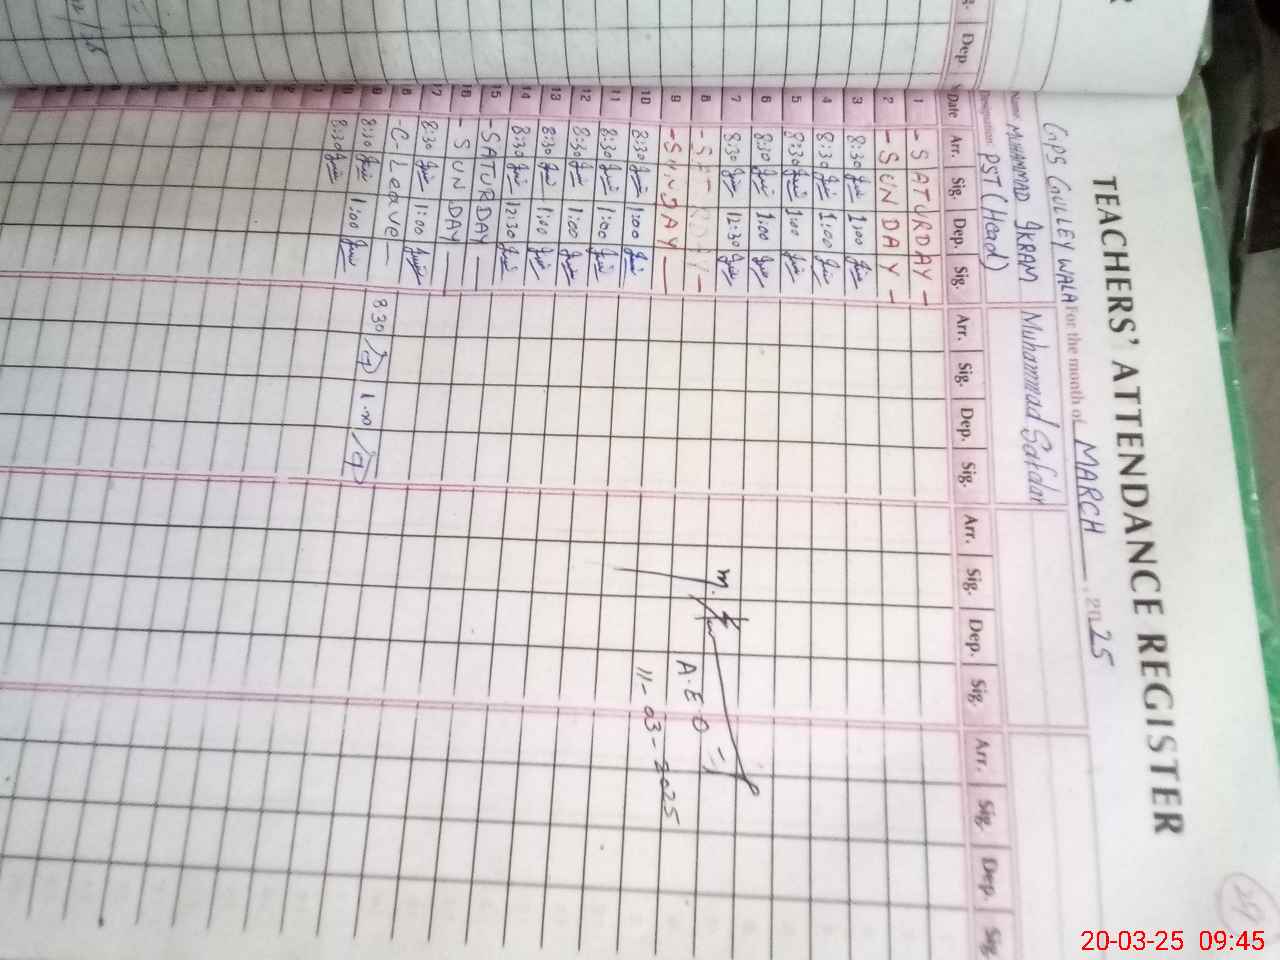 TEACHERS' ATTENDANCE REGISTER
GPS GULLEY WALA For the month of MARCH 2025
Name MUHAMMAD IKRAM Muhammad Safdar
Designation: PST (Head)
Date Arr. Sig. Dep. Sig. Arr. Sig. Dep. Sig. Arr. Sig. Dep. Sig. Arr. Sig. Dep. Sig.
1 - SATURDAY -
2 - SUNDAY -
3 8:30 1:00
4 8:30 1:00
5 8:30 1:00
6 8:30 1:00
7 8:30 12:30
8
9 - SUNDAY -
10 8:30 1:00
11 8:30 1:00
12 8:30 1:00
13 8:30 1:00
14 8:30 12:30
15 - SATURDAY -
16 - SUNDAY -
17 8:30 1:00
18 - C-Leave -
19 8:30 1:00 8:30 1:00
20 8:30
A.E.O
11-03-2025
Dep.
20-03-25 09:45